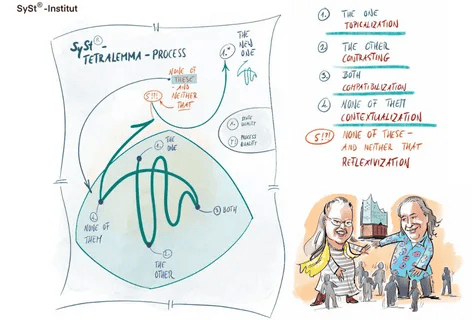 SySt®-Institut
SySt®-
TETRALEMMA-PROCESS
NONE OF
THESE
AND
NEITHER
THAT
5!?!
1.*
THE
NEW
ONE
PROCESS
QUALITY
1. THE
ONE
3. BOTH
4.
NONE OF
THEM
2.
THE
OTHER
1. THE ONE
TOPICALIZATION
2. THE OTHER
CONTRASTING
3. BOTH
COMPATIBILIZATION
4. NONE OF THEM
CONTEXTUALIZATION
5!?! NONE OF THESE-
AND NEITHER THAT
REFLEXIVIZATION